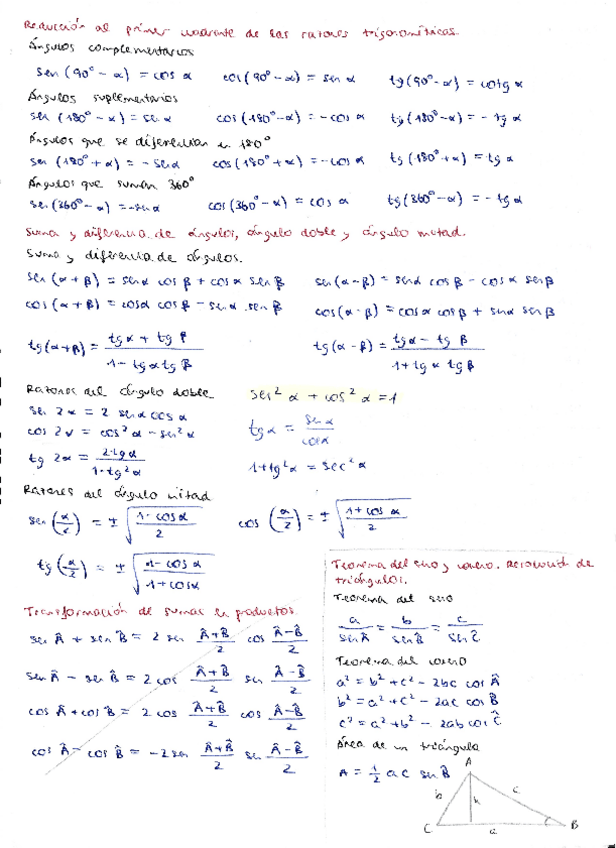 Reducción al primer cuadrante de las razones trigonométricas.
Ángulos complementarios
sen (90° - α) = cos α cos (90° - α) = sen α tg (90° - α) = cotg α
Ángulos suplementarios
sen (180° - α) = sen α cos (180° - α) = - cos α tg (180° - α) = - tg α
Ángulos que se diferencian en 180°
sen (180° + α) = - sen α cos (180° + α) = - cos α tg (180° + α) = tg α
Ángulos que suman 360°
sen (360° - α) = - sen α cos (360° - α) = cos α tg (360° - α) = - tg α
Suma y diferencia de ángulos, ángulo doble y ángulo mitad.
Suma y diferencia de ángulos.
sen (α + β) = sen α cos β + cos α sen β sen (α - β) = sen α cos β - cos α sen β
cos (α + β) = cos α cos β - sen α . sen β cos (α - β) = cos α cos β + sen α sen β
tg (α + β) = (tg α + tg β) / (1 - tg α tg β) tg (α - β) = (tg α - tg β) / (1 + tg α tg β)
Razones del ángulo doble sen² α + cos² α = 1
sen 2α = 2 sen α cos α tg α = sen α / cos α
cos 2α = cos² α - sen² α
tg 2α = 2·tg α / (1 - tg² α) 1 + tg² α = sec² α
Razones del ángulo mitad
sen (α/2) = ± √((1 - cos α) / 2) cos (α/2) = ± √((1 + cos α) / 2)
tg (α/2) = ± √((1 - cos α) / (1 + cos α))
Transformación de sumas en productos
sen Â + sen B̂ = 2 sen (Â + B̂)/2 cos (Â - B̂)/2
sen Â - sen B̂ = 2 cos (Â + B̂)/2 sen (Â - B̂)/2
cos Â + cos B̂ = 2 cos (Â + B̂)/2 cos (Â - B̂)/2
cos Â - cos B̂ = - 2 sen (Â + B̂)/2 sen (Â - B̂)/2
Teorema del seno y coseno. Resolución de
triángulos.
Teorema del seno
a / sen Â = b / sen B̂ = c / sen Ĉ
Teorema del coseno
a² = b² + c² - 2bc cos Â
b² = a² + c² - 2ac cos B̂
c² = a² + b² - 2ab cos Ĉ
Área de un triángulo
A = 1/2 a c sen B̂
A
b h c
C a B